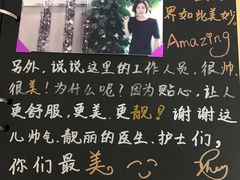 界如此美妙
Amazing
另外,说说这里的工作人员,很帅
很美!为什么呢?因为贴心,让人
更舒服,更美,更靓!谢谢这
儿帅气、靓丽的医生、护士们,
你们最美